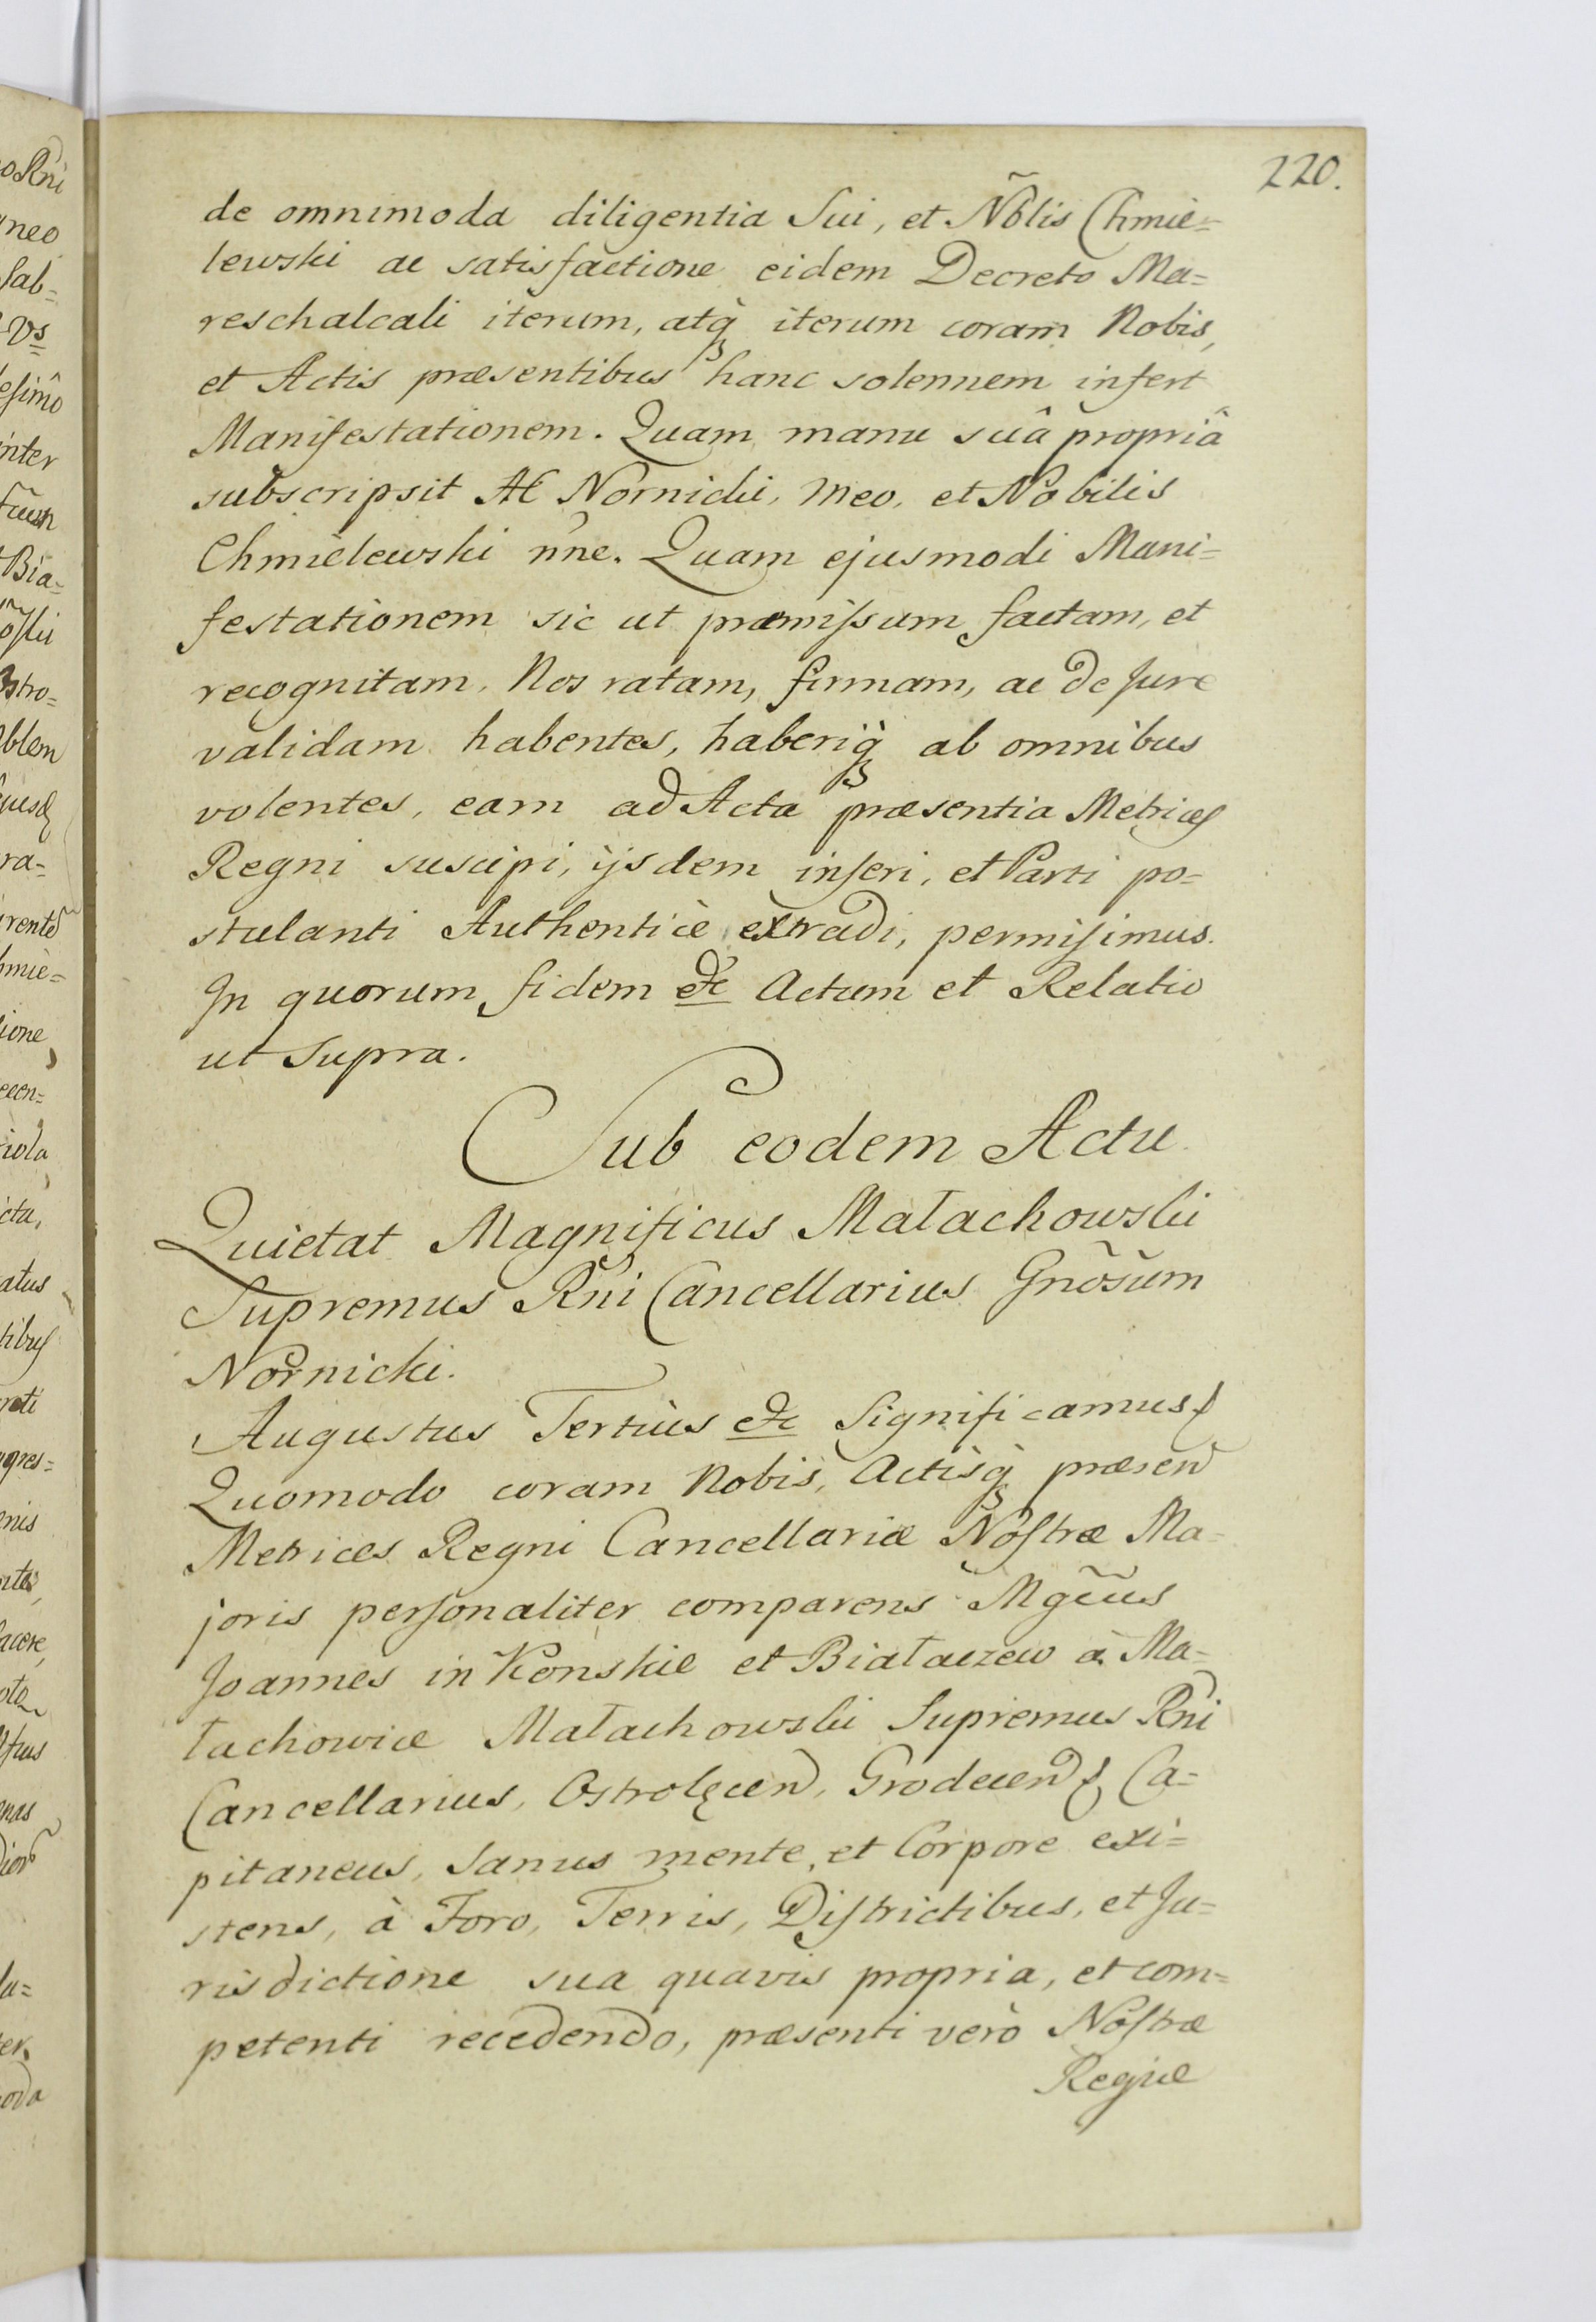 220.
de omnimoda diligentia Sui, et Nõblis Chmie=
lewski ac satisfactione eidem Decreto Ma=
reschalcali iterum, atq̀ iterum coram Nobis,
et Actis præsentibus hanc solennem infert
Manifestationem. Quam manu suâ propriâ
subscripsit Nornicki, meo, et Nobilis
Chmielewski nñe. Quam ejusmodi Mani=
festationem sic ut præmiſsum factam, et
recognitam, Nos ratam, firmam, ac de Jure
validam habentes, haberiq̀ ab omnibus
volentes, eam ad Acta præsentia Metrices
Regni suscipi, ijsdem inseri, et Parti po=
stulanti Authenticè extradi, permiſimus.
In quorum fidem &c Actum et Relatio
ut Supra.
Sub eodem Actu
Quietat Magnificus Małachowski
Supremus Rñi Cancellarius Gnõsum
Nornicki.
Augustus Tertius &c Significamus &
Quomodo coram Nobis, Actisq̀ præsen
Metrices Regni Cancellariæ Noſtræ Ma=
joris perſonaliter comparens Mgñus
Joannes in Konskie et Białaczew à Ma=
łachowice Małachowski Supremus Rñi
Cancellarius, Ostrołęcen, Grodecen & Ca=
pitaneus, Sanus mente, et Corpore exi=
stens, à Foro, Terris, Diſtrictibus, et Ju=
risdictione sua quavis propria, et com=
petenti recedendo, præsenti verò Noſtræ
Regiæ